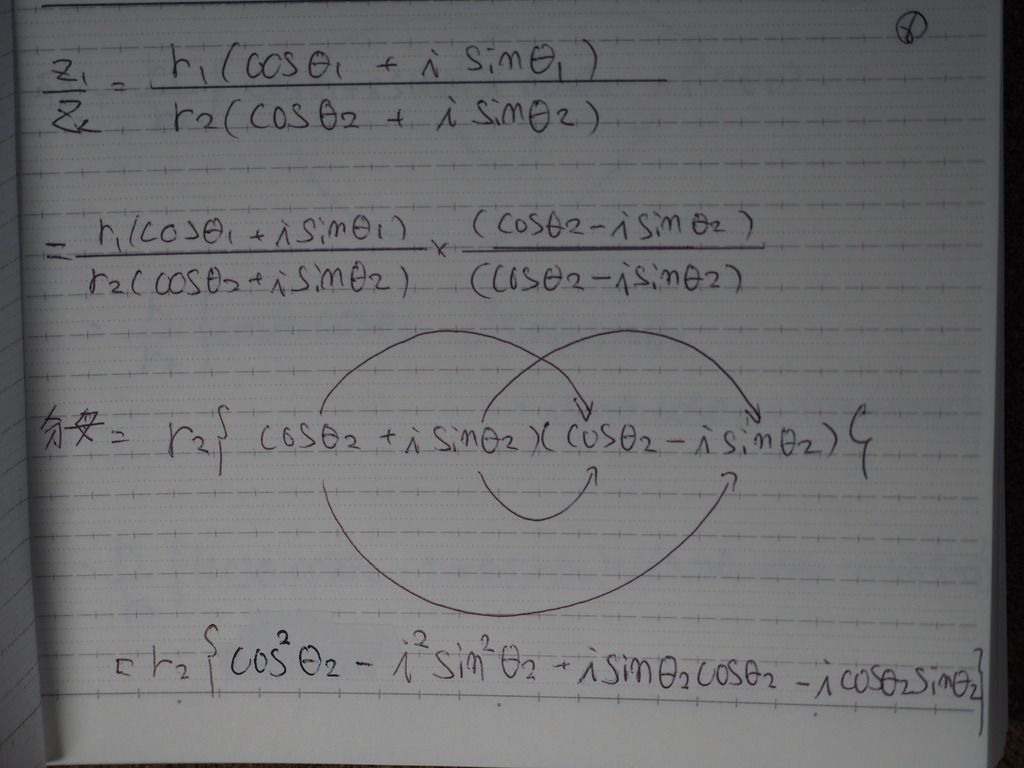 ⑧
z₁/z₂ = r₁(cosθ₁ + i sinθ₁) / r₂(cosθ₂ + i sinθ₂)
= r₁(cosθ₁ + i sinθ₁) / r₂(cosθ₂ + i sinθ₂) × (cosθ₂ − i sinθ₂) / (cosθ₂ − i sinθ₂)
分母 = r₂{ cosθ₂ + i sinθ₂)(cosθ₂ − i sinθ₂) }
= r₂{ cos²θ₂ − i² sin²θ₂ + i sinθ₂cosθ₂ − i cosθ₂sinθ₂}